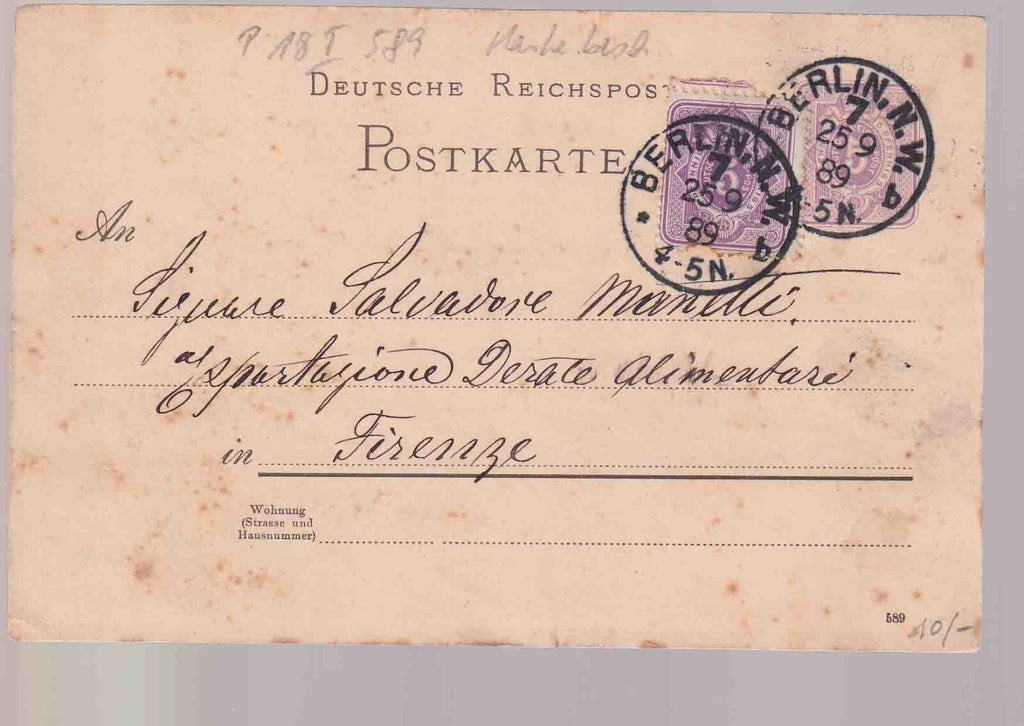 P 18 I 589 Marke besch
DEUTSCHE REICHSPOST
POSTKARTE
BERLIN, N.W.
7
25 9
89
4-5N.
* b
BERLIN, N.W.
7
25 9
89
-5N.
b
5
An
Signore Salvadore Manetti.
Esportazione Derate alimentari
in Firenze
Wohnung
(Strasse und
Hausnummer)
589
10/-